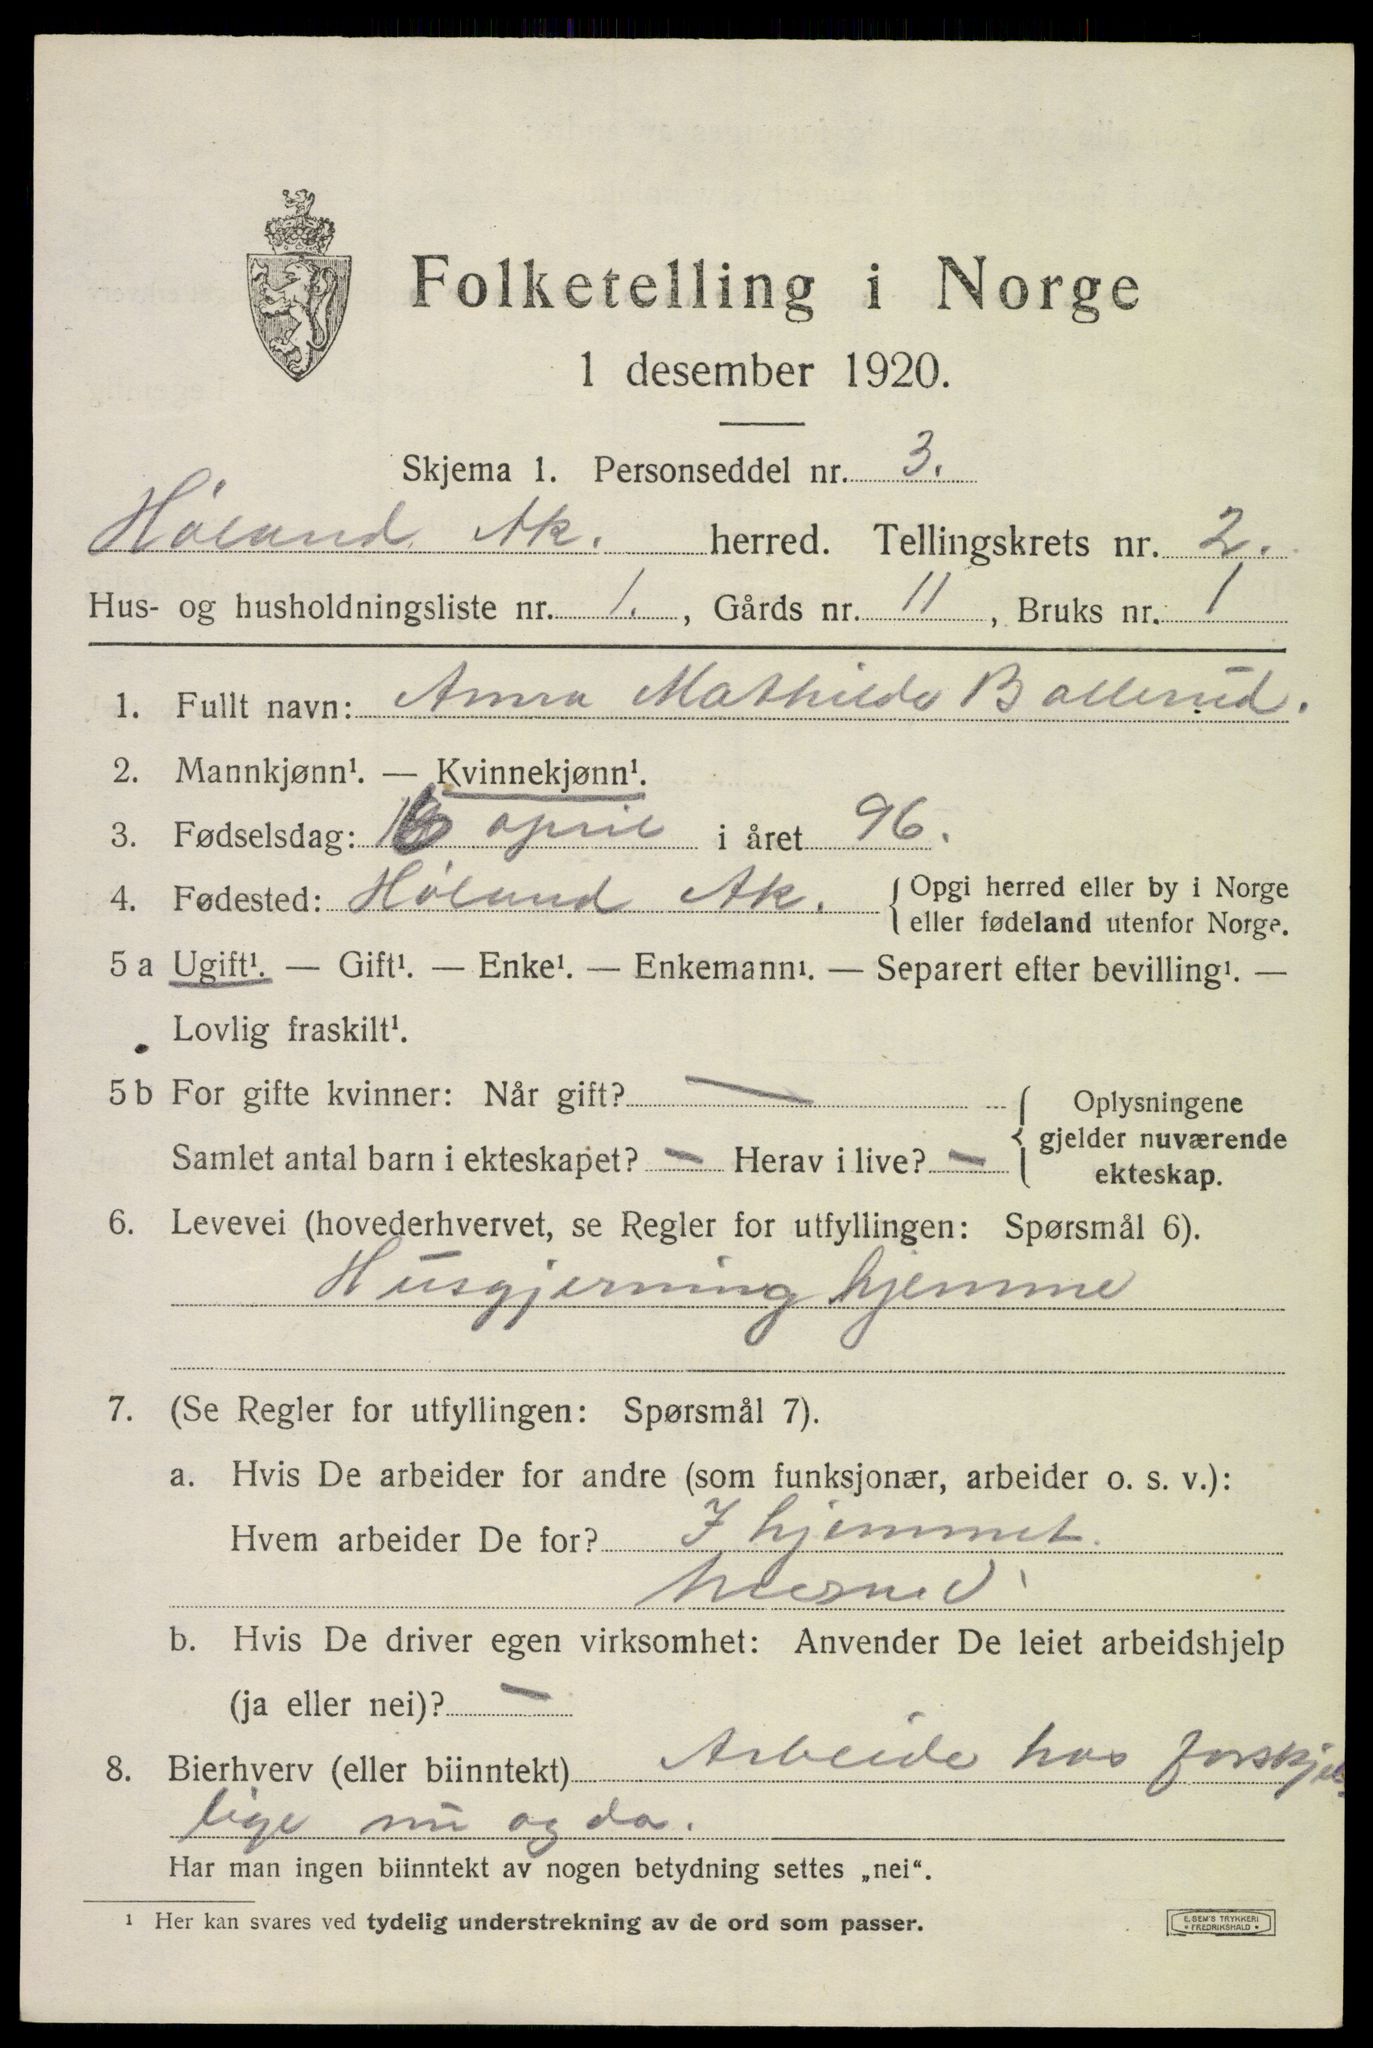 Folketelling i Norge
1 desember 1920.
Skjema 1. Personseddel nr. 3.
Høland Ak. herred. Tellingskrets nr. 2.
Hus- og husholdningsliste nr. 1., Gårds nr. 11, Bruks nr. 1
1. Fullt navn: Anna Mathilde Ballerud.
2. Mannkjønn¹. — Kvinnekjønn¹.
3. Fødselsdag: 16 april i året 96.
4. Fødested: Høland Ak. { Opgi herred eller by i Norge
eller fødeland utenfor Norge.
5 a Ugift¹. — Gift¹. — Enke¹. — Enkemann¹. — Separert efter bevilling¹. —
Lovlig fraskilt¹.
5 b For gifte kvinner: Når gift? — { Oplysningene
gjelder nuværende
ekteskap.
Samlet antal barn i ekteskapet? — Herav i live? —
6. Levevei (hovederhvervet, se Regler for utfyllingen: Spørsmål 6).
Husgjerning hjemme
7. (Se Regler for utfyllingen: Spørsmål 7).
a. Hvis De arbeider for andre (som funksjonær, arbeider o. s. v.):
Hvem arbeider De for? I hjemmet.
b. Hvis De driver egen virksomhet: Anvender De leiet arbeidshjelp
(ja eller nei)? —
8. Bierhverv (eller biinntekt) Arbeide hos forskjel-
lige nu og da.
Har man ingen biinntekt av nogen betydning settes „nei“.
¹ Her kan svares ved tydelig understrekning av de ord som passer.
E. SEM'S TRYKKERI
FREDRIKSHALD